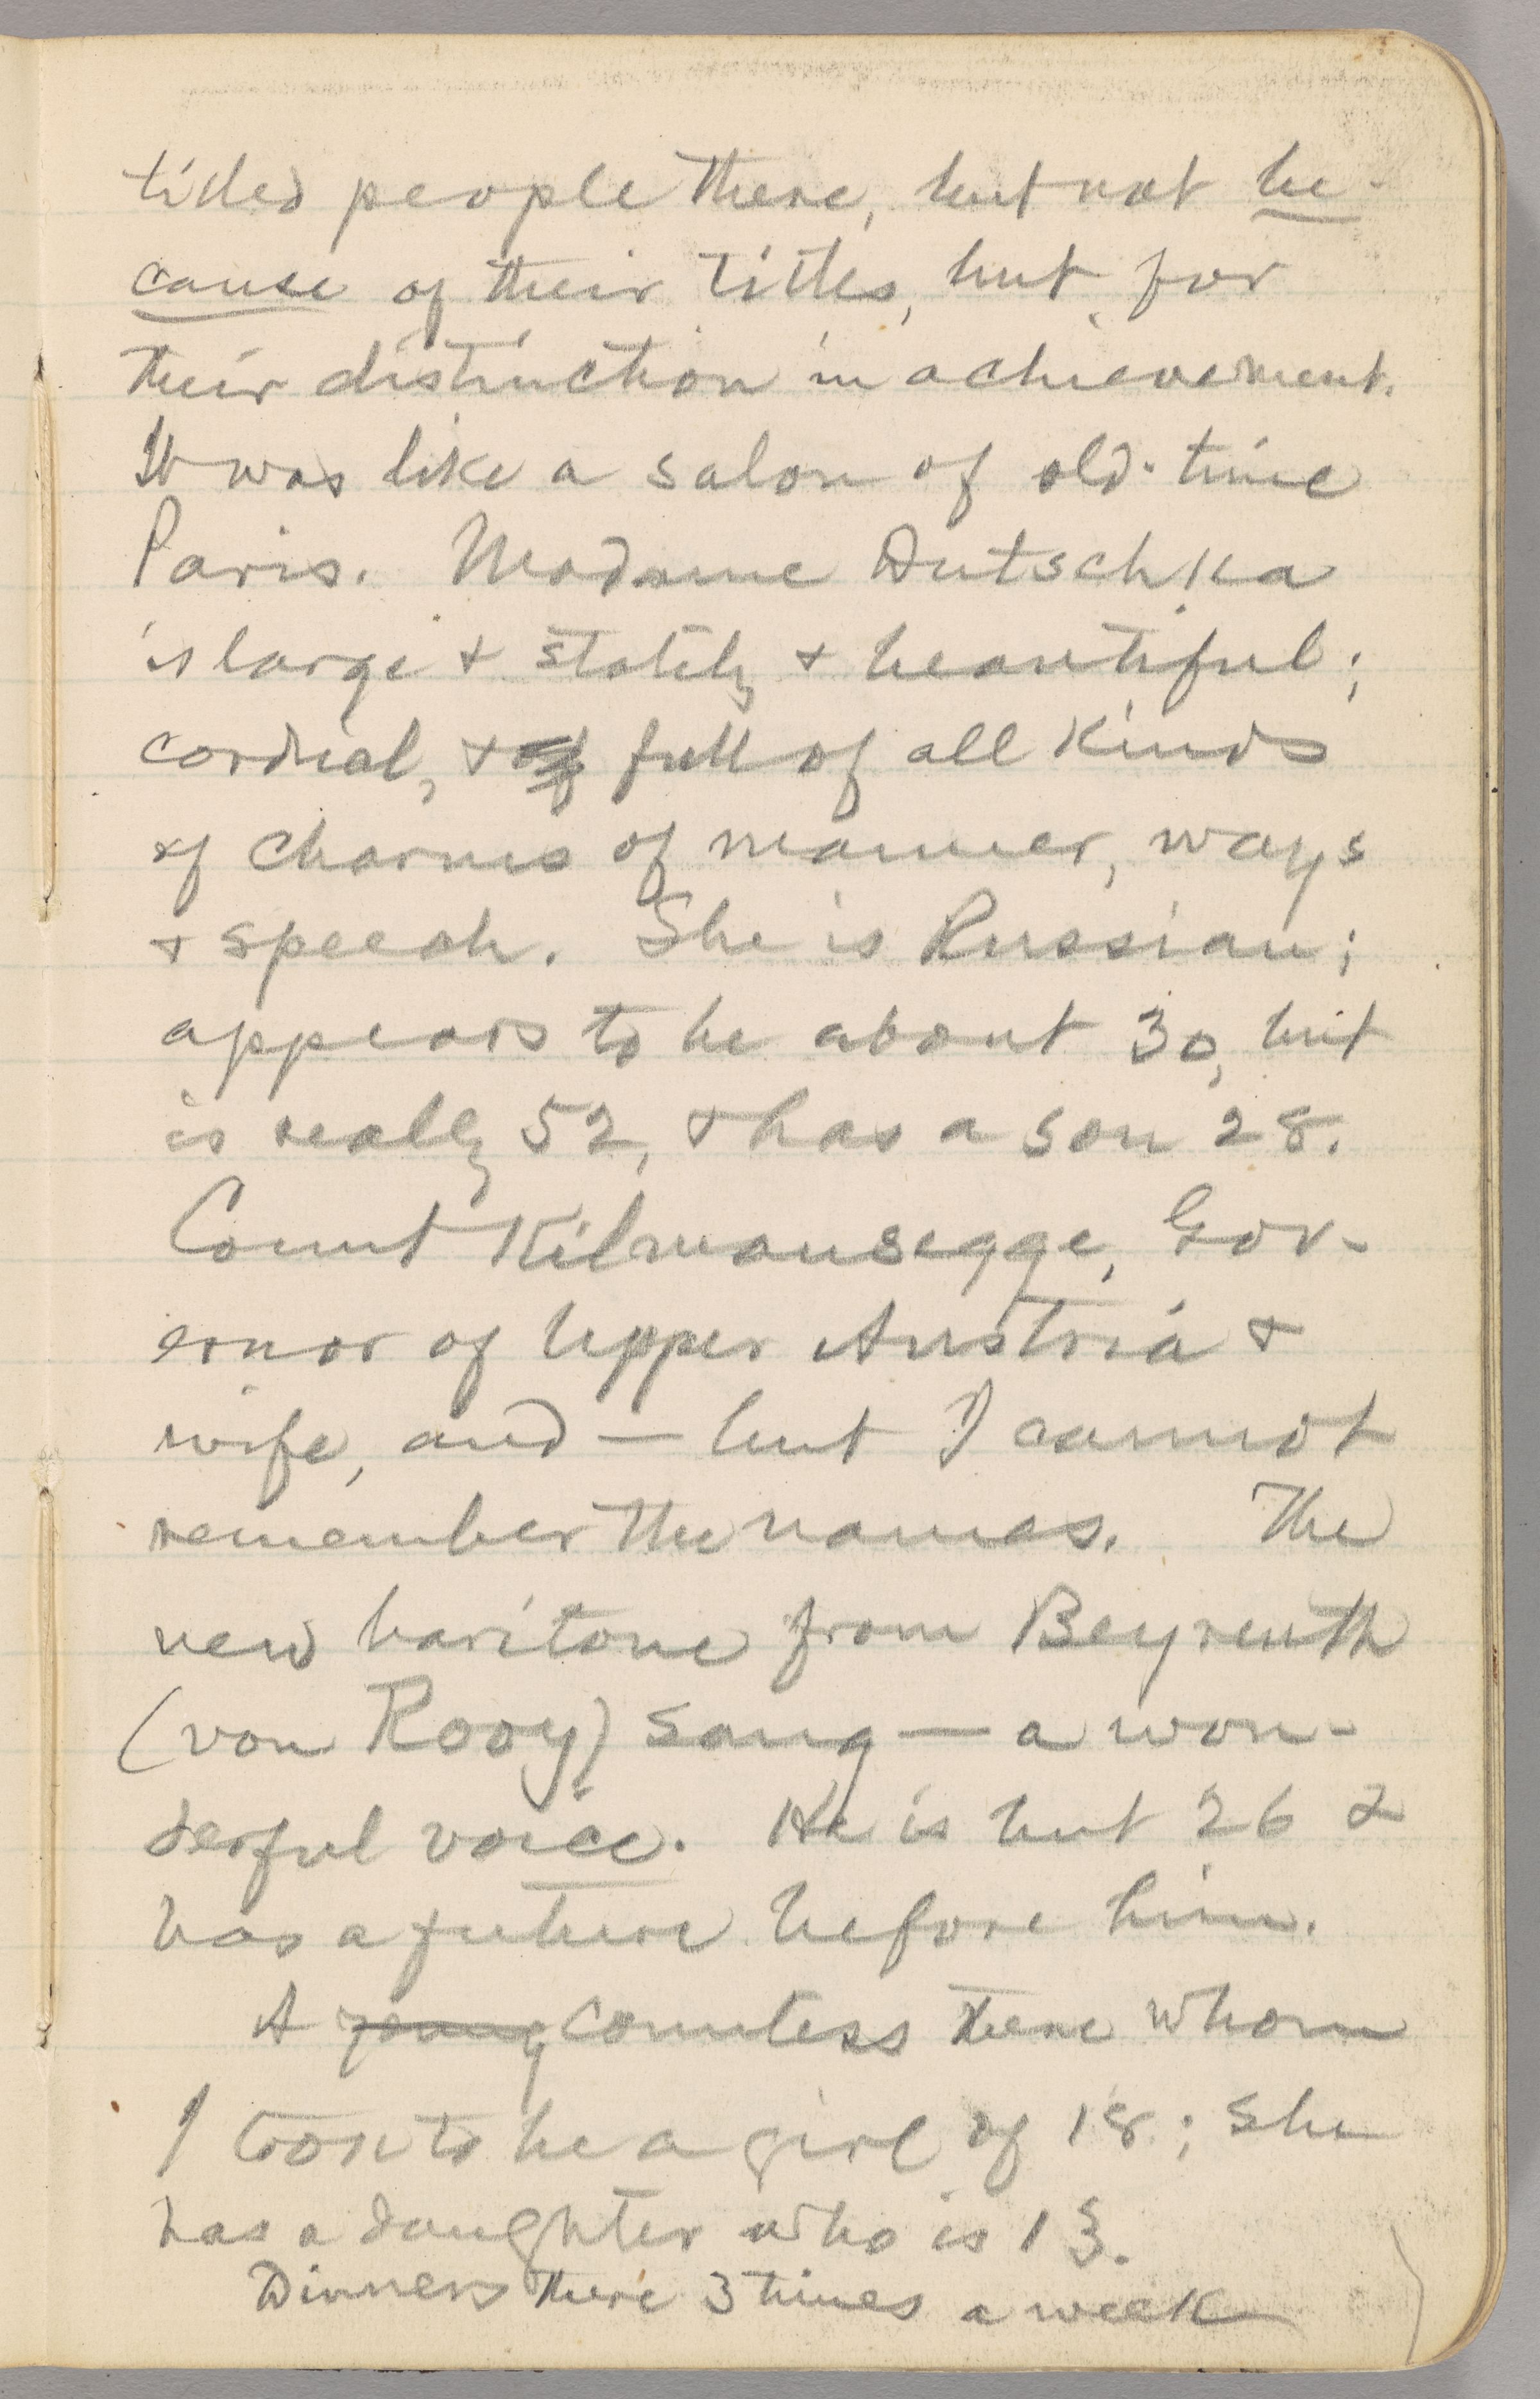 titled people there, but not be-
cause of their titles, but for
their distinction in achievement.
It was like a salon of old-time
Paris. Madame Dutschka
is large & stately & beautiful;
cordial, & of full of all kinds
of charms of manner, ways
& speech. She is Russian;
appears to be about 30, but
is really 52, & has a son 28.
Count Kilmansegge, Gov-
ernor of Upper Austria &
wife, and — but I cannot
remember the names. The
new baritone from Beyreuth
(von Rooy) sang — a won-
derful voice. He is but 26 &
has a future before him.
A young Countess there whom
I took to be a girl of 18; she
has a daughter who is 13.
Dinners there 3 times a week